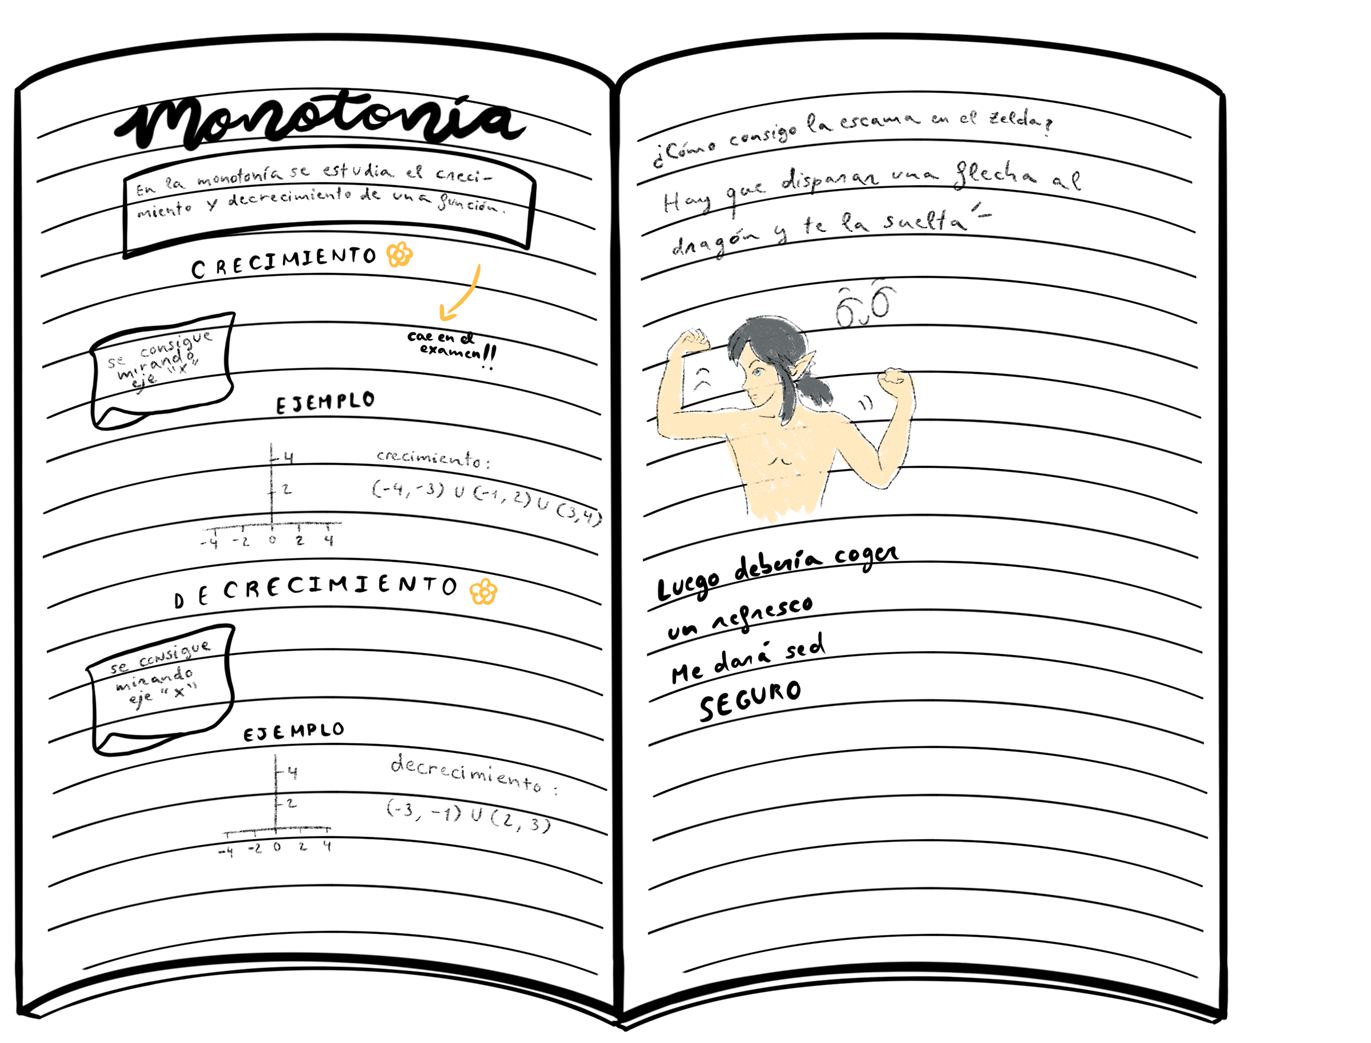 Monotonía
En la monotonía se estudia el creci-
miento y decrecimiento de una función.
CRECIMIENTO
cae en el
examen!!
se consigue
mirando
eje "x"
EJEMPLO
4
2
-4 -2 0 2 4
crecimiento:
(-4,-3) U (-1, 2) U (3,4)
DECRECIMIENTO
se consigue
mirando
eje "x"
EJEMPLO
4
2
-4 -2 0 2 4
decrecimiento:
(-3, -1) U (2, 3)
¿Cómo consigo la escama en el zelda?
Hay que disparar una flecha al
dragón y te la suelta
Luego debería coger
un refresco
Me dará sed
SEGURO